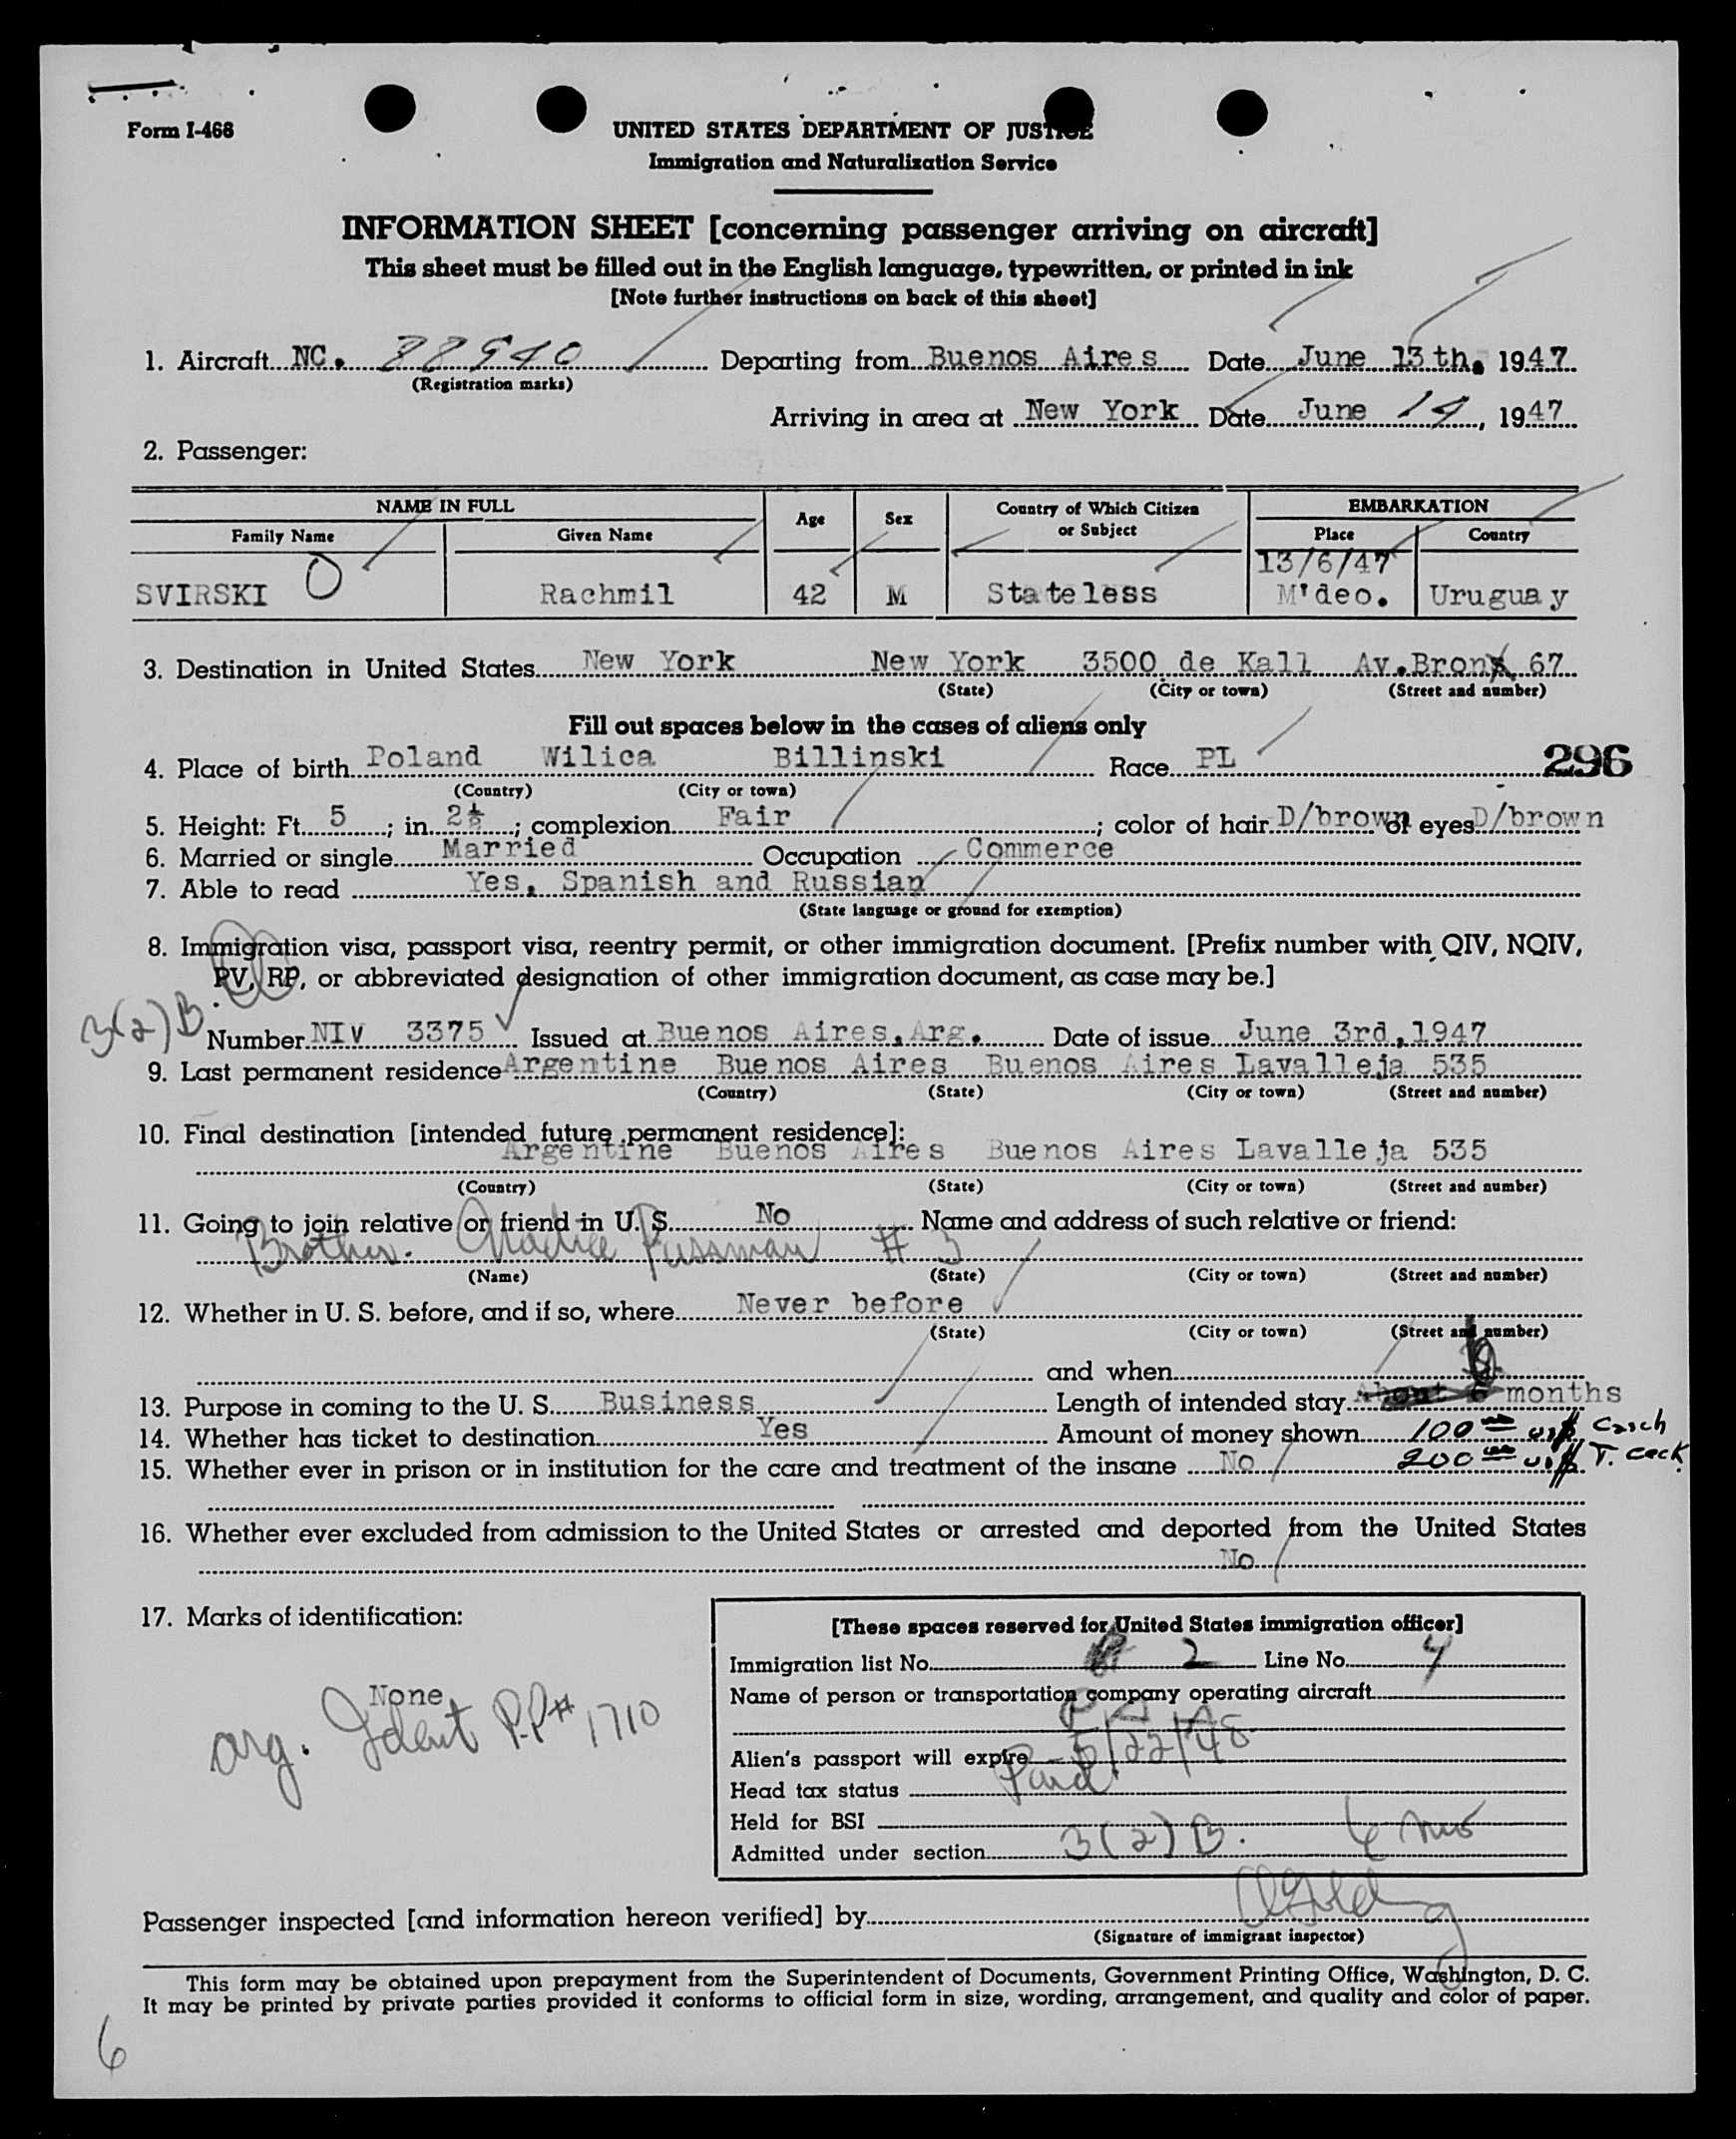 Form I-468
UNITED STATES DEPARTMENT OF JUSTICE
Immigration and Naturalization Service
INFORMATION SHEET [concerning passenger arriving on aircraft]
This sheet must be filled out in the English language, typewritten, or printed in ink
[Note further instructions on back of this sheet]
1. Aircraft NC. 88940 Departing from Buenos Aires Date June 13th, 1947
(Registration marks)
Arriving in area at New York Date June 14, 1947
2. Passenger:
NAME IN FULL Age Sex Country of Which Citizen or Subject EMBARKATION
Family Name Given Name Place Country
13/6/47
SVIRSKI O Rachmil 42 M Stateless M'deo. Uruguay
3. Destination in United States New York New York 3500 de Kall Av.Bronx 67
(State) (City or town) (Street and number)
Fill out spaces below in the cases of aliens only
4. Place of birth Poland Wilica Billinski Race PL 296
(Country) (City or town)
5. Height: Ft. 5 ; in. 2½ ; complexion Fair ; color of hair D/brown of eyes D/brown
6. Married or single Married Occupation Commerce
7. Able to read Yes, Spanish and Russian
(State language or ground for exemption)
8. Immigration visa, passport visa, reentry permit, or other immigration document. [Prefix number with QIV, NQIV,
PV, RP, or abbreviated designation of other immigration document, as case may be.]
3(2)B. Number NIV 3375 Issued at Buenos Aires.Arg. Date of issue June 3rd,1947
9. Last permanent residence Argentine Buenos Aires Buenos Aires Lavalleja 535
(Country) (State) (City or town) (Street and number)
10. Final destination [intended future permanent residece]:
Argentine Buenos Aires Buenos Aires Lavalleja 535
(Country) (State) (City or town) (Street and number)
11. Going to join relative or friend in U. S. No Name and address of such relative or friend:
Brother. # 3
(Name) (State) (City or town) (Street and number)
12. Whether in U. S. before, and if so, where Never before
(State) (City or town) (Street and number)
and when
13. Purpose in coming to the U. S. Business Length of intended stay About 6 months
14. Whether has ticket to destination Yes Amount of money shown 100 us$ Casch
15. Whether ever in prison or in institution for the care and treatment of the insane No 200 us$ T. Ceck
16. Whether ever excluded from admission to the United States or arrested and deported from the United States
No
17. Marks of identification:
None
arg. Ident P.P# 1710
[These spaces reserved for United States immigration officer]
Immigration list No. 2 Line No. 4
Name of person or transportation company operating aircraft
P A A
Alien's passport will expire 5/22/48
Head tax status Paid
Held for BSI
Admitted under section 3(2)B. 6 mos
Passenger inspected [and information hereon verified] by
(Signature of immigrant inspector)
This form may be obtained upon prepayment from the Superintendent of Documents, Government Printing Office, Washington, D. C.
It may be printed by private parties provided it conforms to official form in size, wording, arrangement, and quality and color of paper.
6